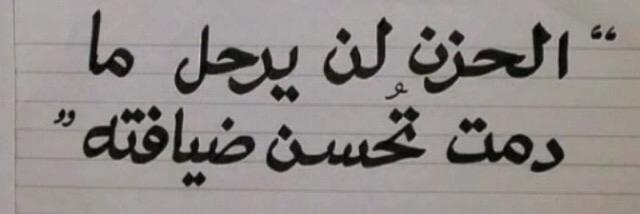 “الحزن لن يرحل ما
دمت تُحسن ضيافته”